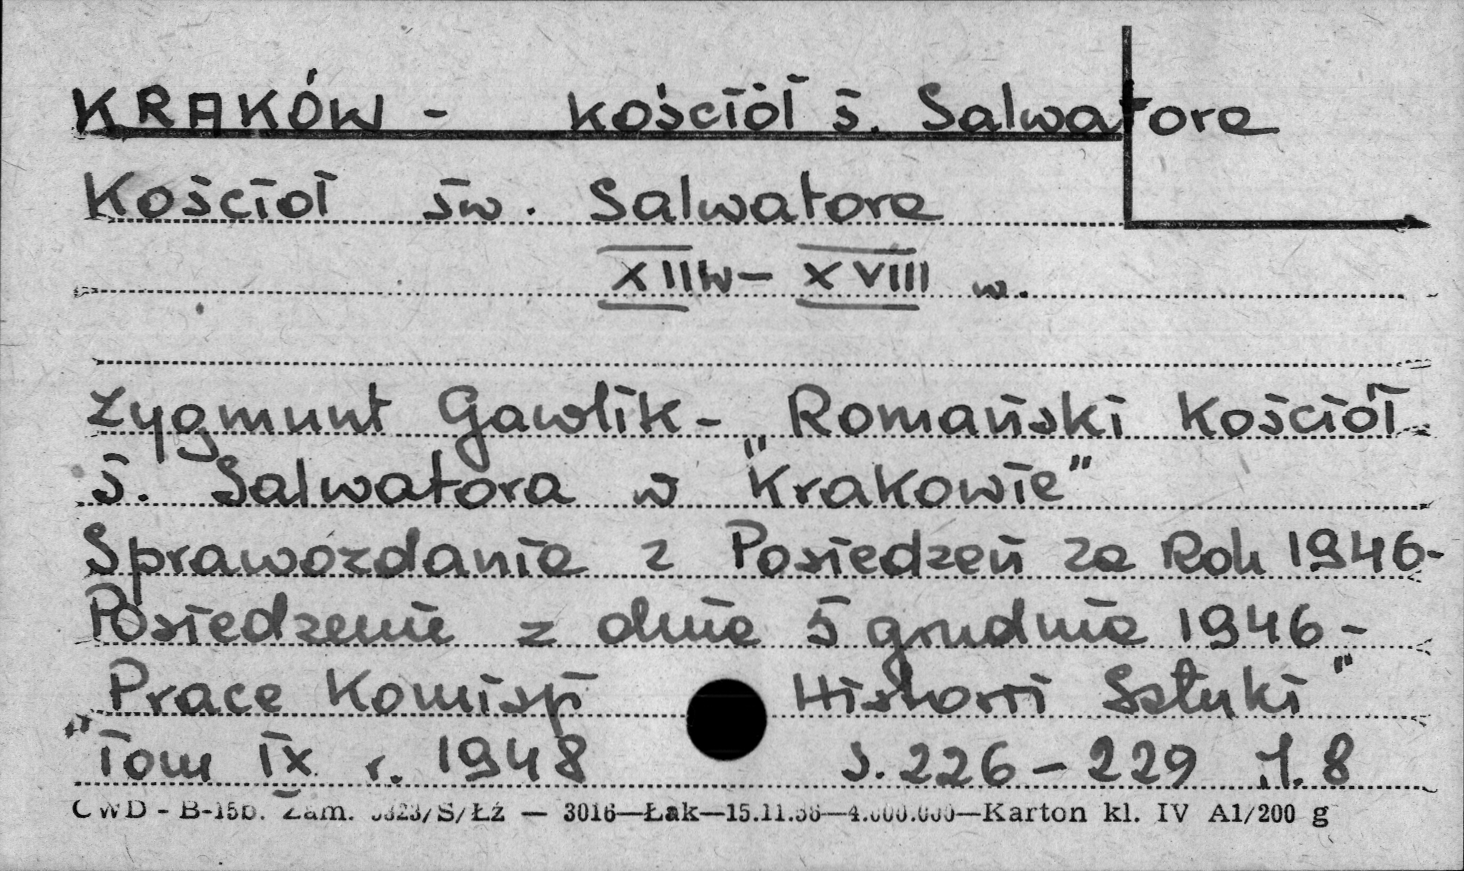 KRAKÓW - kościół ś. Salwatora
Kościół św. Salwatora
XII w - XVIII w.
Zygmunt Gawlik - „Romański Kościół
ś. Salwatora w Krakowie"
Sprawozdania z Posiedzeń za Rok 1946-
Posiedzenie z dnia 5 grudnia 1946 -
„Prace Komisji Historii Sztuki"
Tom IX r. 1948 s. 226 - 229 il. 8
CWD - B-15b. Zam. /S/Łź — 3016—Łak—15.11.56—4.000.000—Karton kl. IV A1/200 g